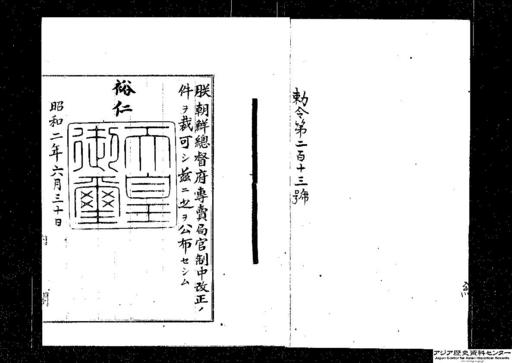 勅令第二百十三號
朕朝鮮總督府專賣局官制中改正ノ
件ヲ裁可シ茲ニ之ヲ公布セシム
裕仁
天皇
御璽
昭和二年六月三十日
アジア歴史資料センター
Japan Center for Asian Historical Records